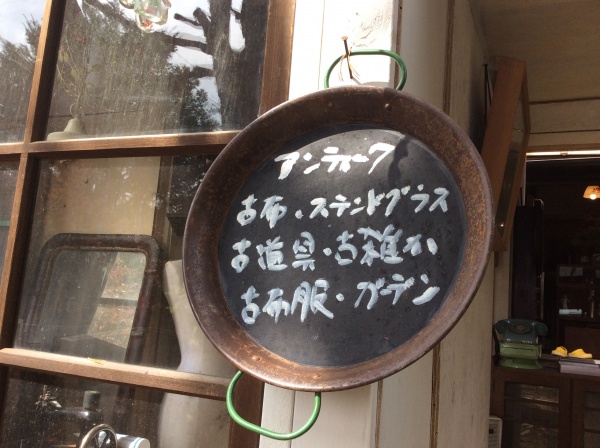 アンティーク
古布・ステンドグラス
古道具・古雑か
古布服・ガーデン